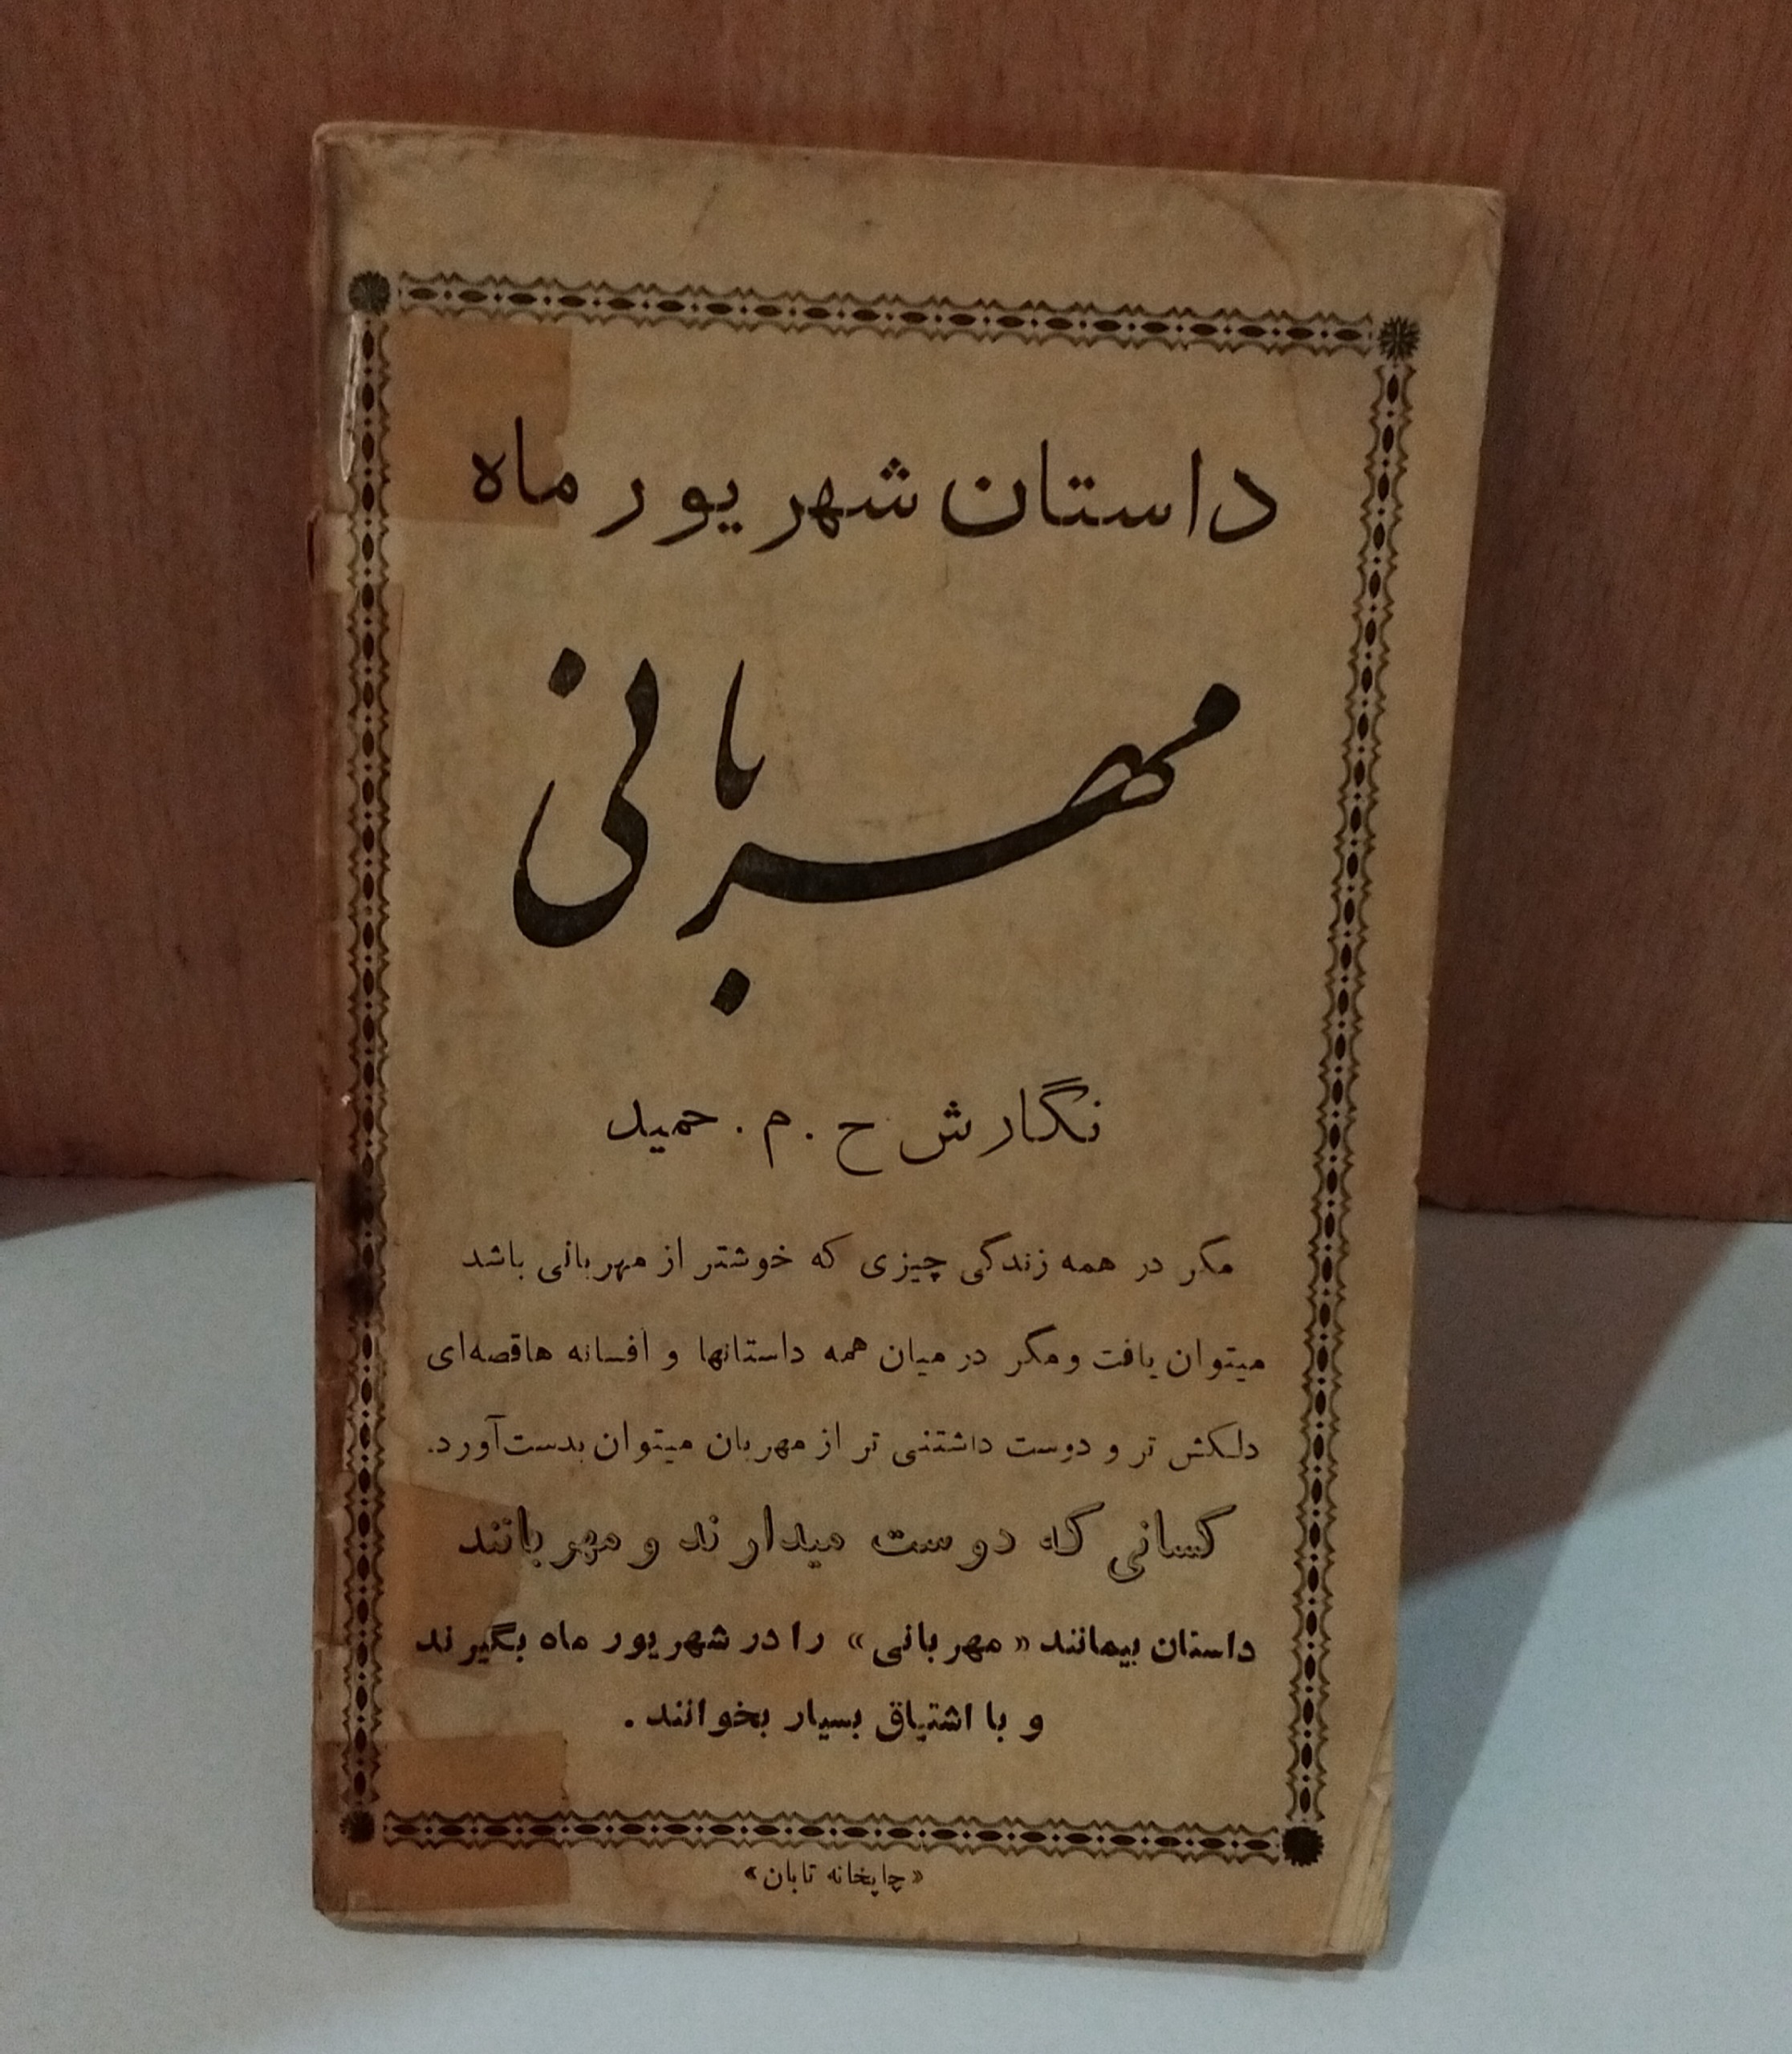 داستان شهریور ماه
مهربانی
نگارش ح . م . حمید
مگر در همه زندگی چیزی که خوشتر از مهربانی باشد
میتوان یافت ومگر در میان همه داستانها و افسانه هاقصه‌ای
دلکش تر و دوست داشتنی تر از مهربان میتوان بدست‌آورد.
کسانی که دوست میدارند و مهربانند
داستان بیمانند «مهربانی» را در شهریور ماه بگیرند
و با اشتیاق بسیار بخوانند .
«چاپخانه تابان»